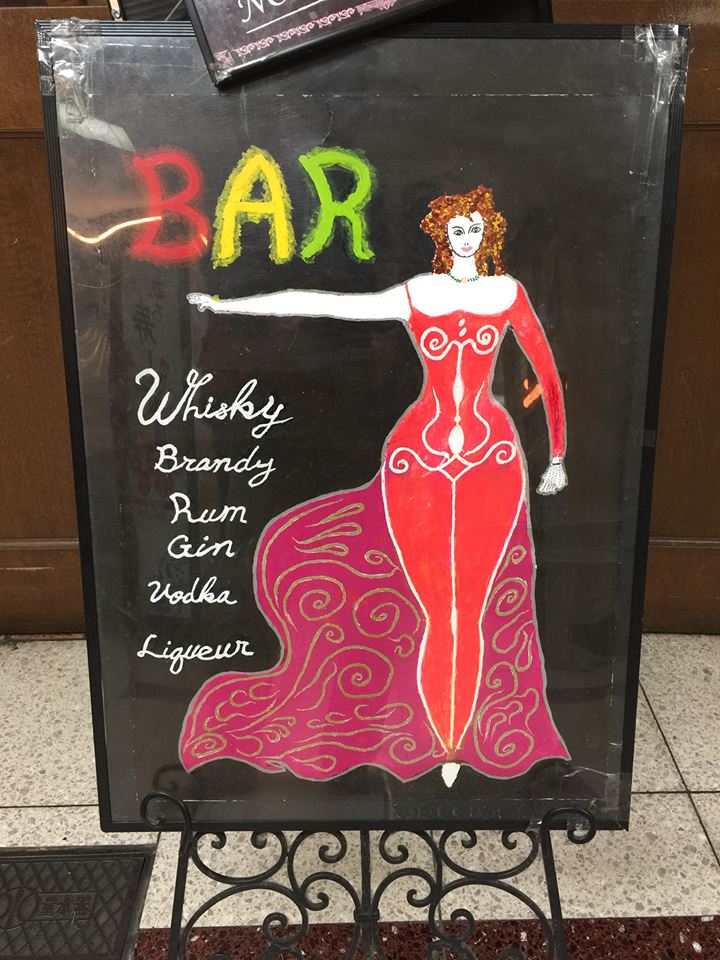 BAR
Whisky
Brandy
Rum
Gin
Vodka
Liqueur